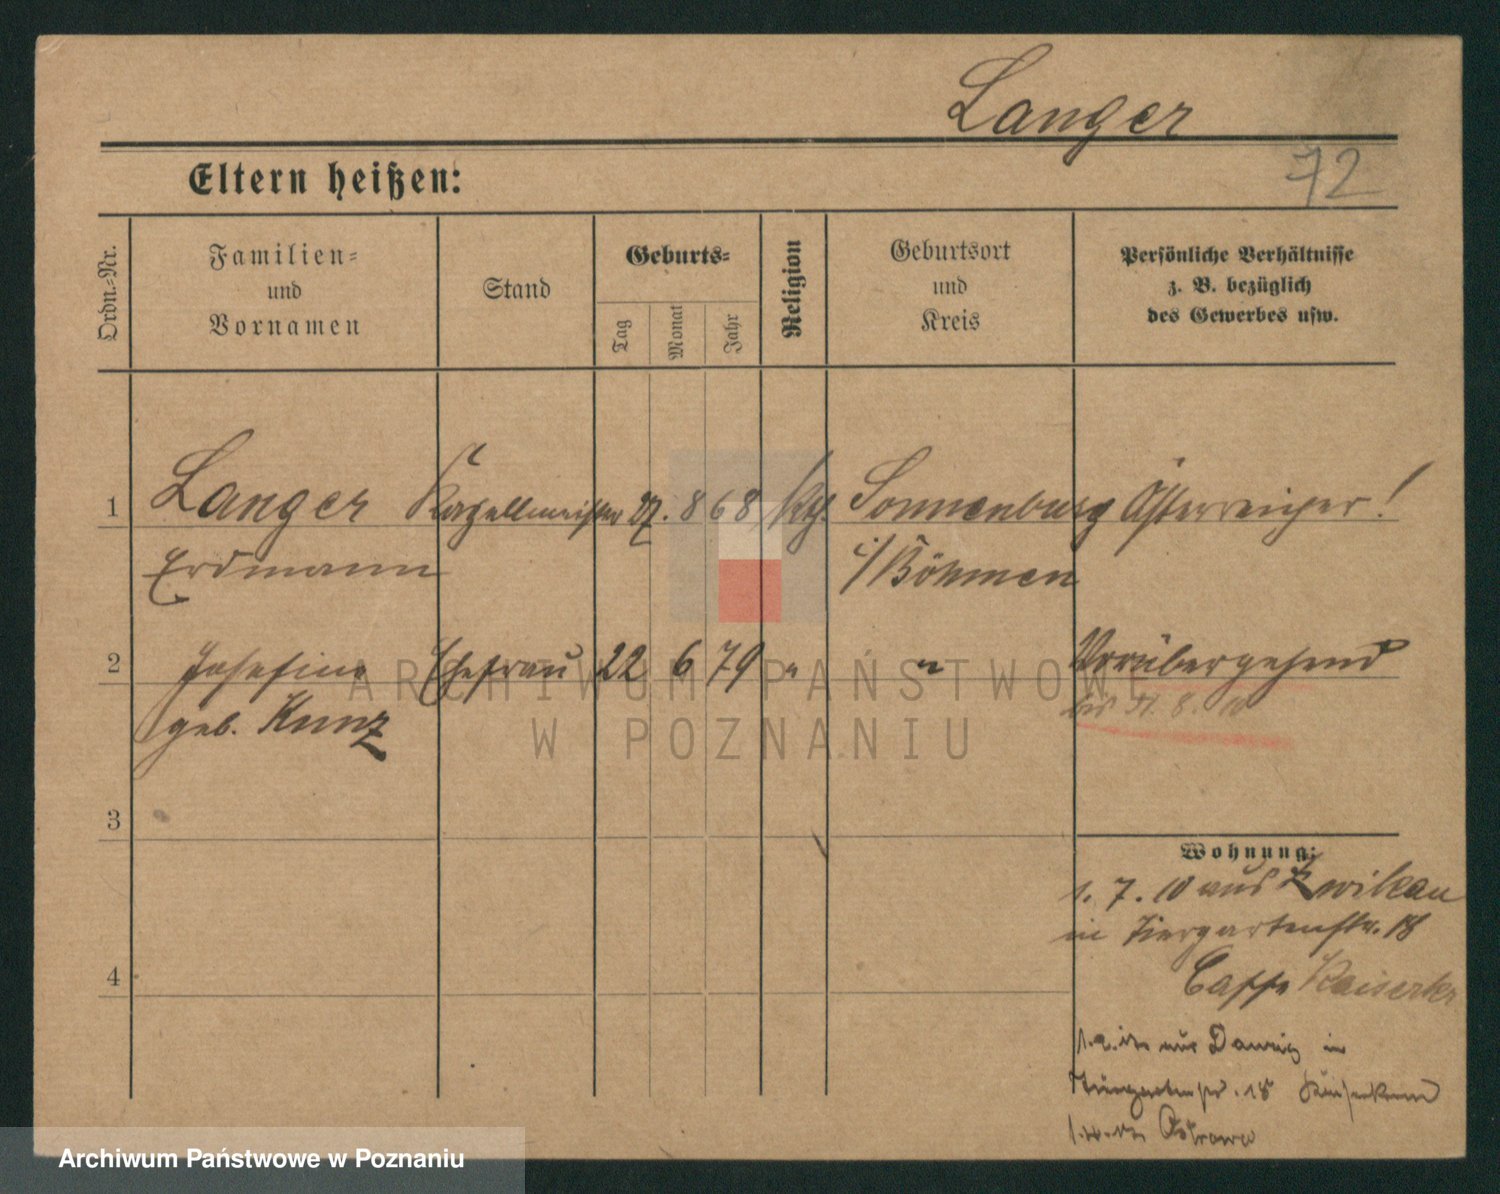 Langer
72
Eltern heißen:
Ordn.-Nr.
Familien-
und
Vornamen
Stand
Geburts-
Tag
Monat
Jahr
Religion
Geburtsort
und
Kreis
Persönliche Verhältnisse
z. B. bezüglich
des Gewerbes usw.
1 Langer Kapellmeister 27. 8 68 Kth. Sonnenburg Österreicher!
Erdmann i/Böhmen
2 Josefine Ehefrau 22 6 79 " " Vorübergehend
geb. Kunz bis 31. 8. 10
3
4
Wohnung:
1. 7. 10 aus Zwikau
in Tiergartenstr. 18
Caffe Kaiserkr
aus Danzig in
Tiergartenstr. 18
Ostrowo
ARCHIWUM PAŃSTWOWE
W POZNANIU
Archiwum Państwowe w Poznaniu